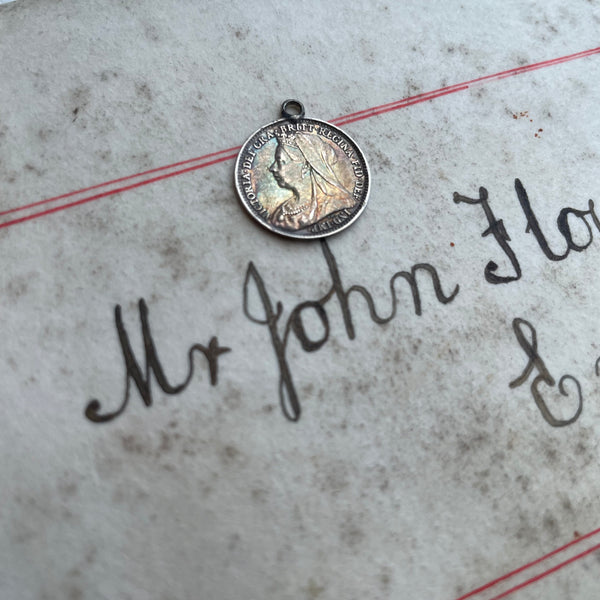 VICTORIA·DEI·GRA·BRITT·REGINA·FID·DEF·IND·IMP·
Mr John